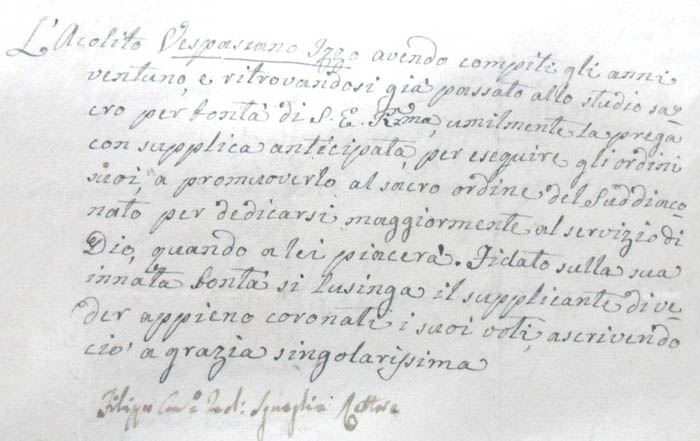 L'Acolito Vespasiano Izzo avendo compiti gli anni
ventuno, e ritrovandosi già passato allo studio sa=
cro per bontà di S. E. Rma, umilmente la prega
con supplica anticipata, per eseguire gli ordini
suoi, a promuoverlo al sacro ordine del Suddiaco=
nato per dedicarsi maggiormente al servizio di
Dio, quando a lei piacerà. Fidato sulla sua
innata bontà si lusinga il supplicante di ve=
der appieno coronati i suoi voti, ascrivendo
ciò a grazia singolarissima
Filippo Rettore